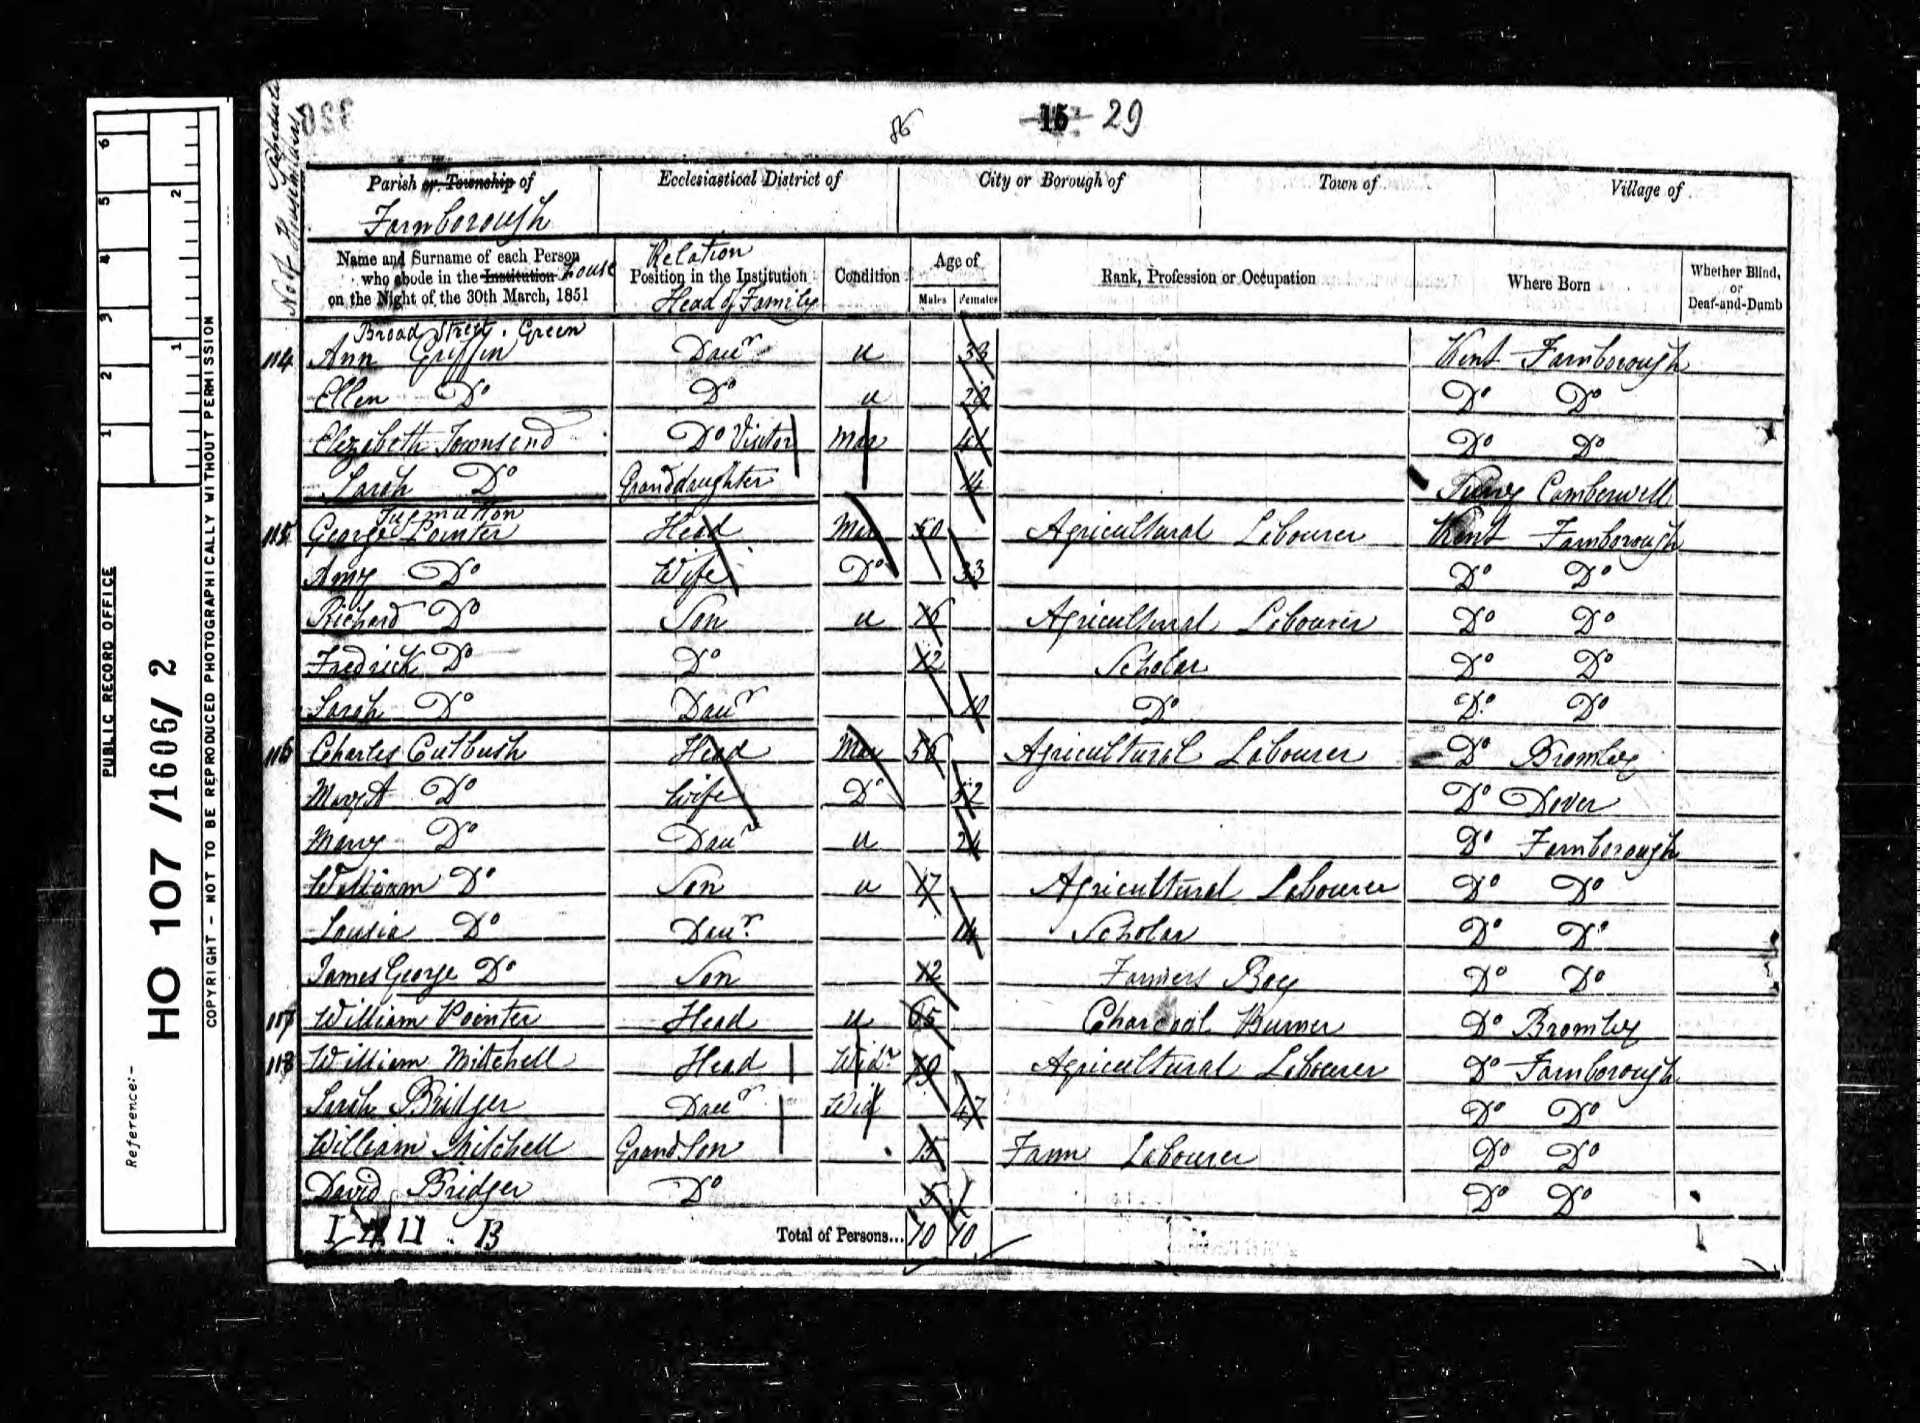 No of Schedule
Householders
86
15 29
Parish or Township of
Ecclesiastical District of
City or Borough of
Town of
Village of
Farnborough
Name and Surname of each Person who abode in the Institution House on the Night of the 30th March, 1851
Relation Position in the Institution Head of Family
Condition
Age of
Males
Females
Rank, Profession or Occupation
Where Born
Whether Blind, or Deaf-and-Dumb
Broad Street Green
114 Ann Griffin Daur u 33 Kent Farnborough
Ellen Do Do u Do Do
Elizabeth Townsend Do Visitor Mar 41 Do Do
Sarah Do Granddaughter 14 Surry Camberwell
Tugmutton
115 George Pointer Head Mar 50 Agricultural Labourer Kent Farnborough
Amy Do Wife Do 33 Do Do
Richard Do Son u 16 Agricultural Labourer Do Do
Fredrick Do Do 12 Scholar Do Do
Sarah Do Daur 10 Do Do Do
116 Charles Cutbush Head Mar 56 Agricultural Labourer Do Bromley
Mary A Do Wife Do 52 Do Dover
Mary Do Daur u 24 Do Farnborough
William Do Son u 17 Agricultural Labourer Do Do
Lousia Do Daur 14 Scholar Do Do
James George Do Son 12 Farmers Boy Do Do
117 William Pointer Head u 65 Charcoal Burner Do Bromley
118 William Mitchell Head Widr 70 Agricultural Labourer Do Farnborough
Sarah Bridger Daur Wid 47 Do Do
William Mitchell Grand Son 15 Farm Labourer Do Do
David Bridger Do 5 Do Do
I 4 U . B
Total of Persons... 10 10
PUBLIC RECORD OFFICE
1 2 3 4 5 6
1 2
Reference:-
HO 107 /1606/ 2
COPYRIGHT - NOT TO BE REPRODUCED PHOTOGRAPHICALLY WITHOUT PERMISSION